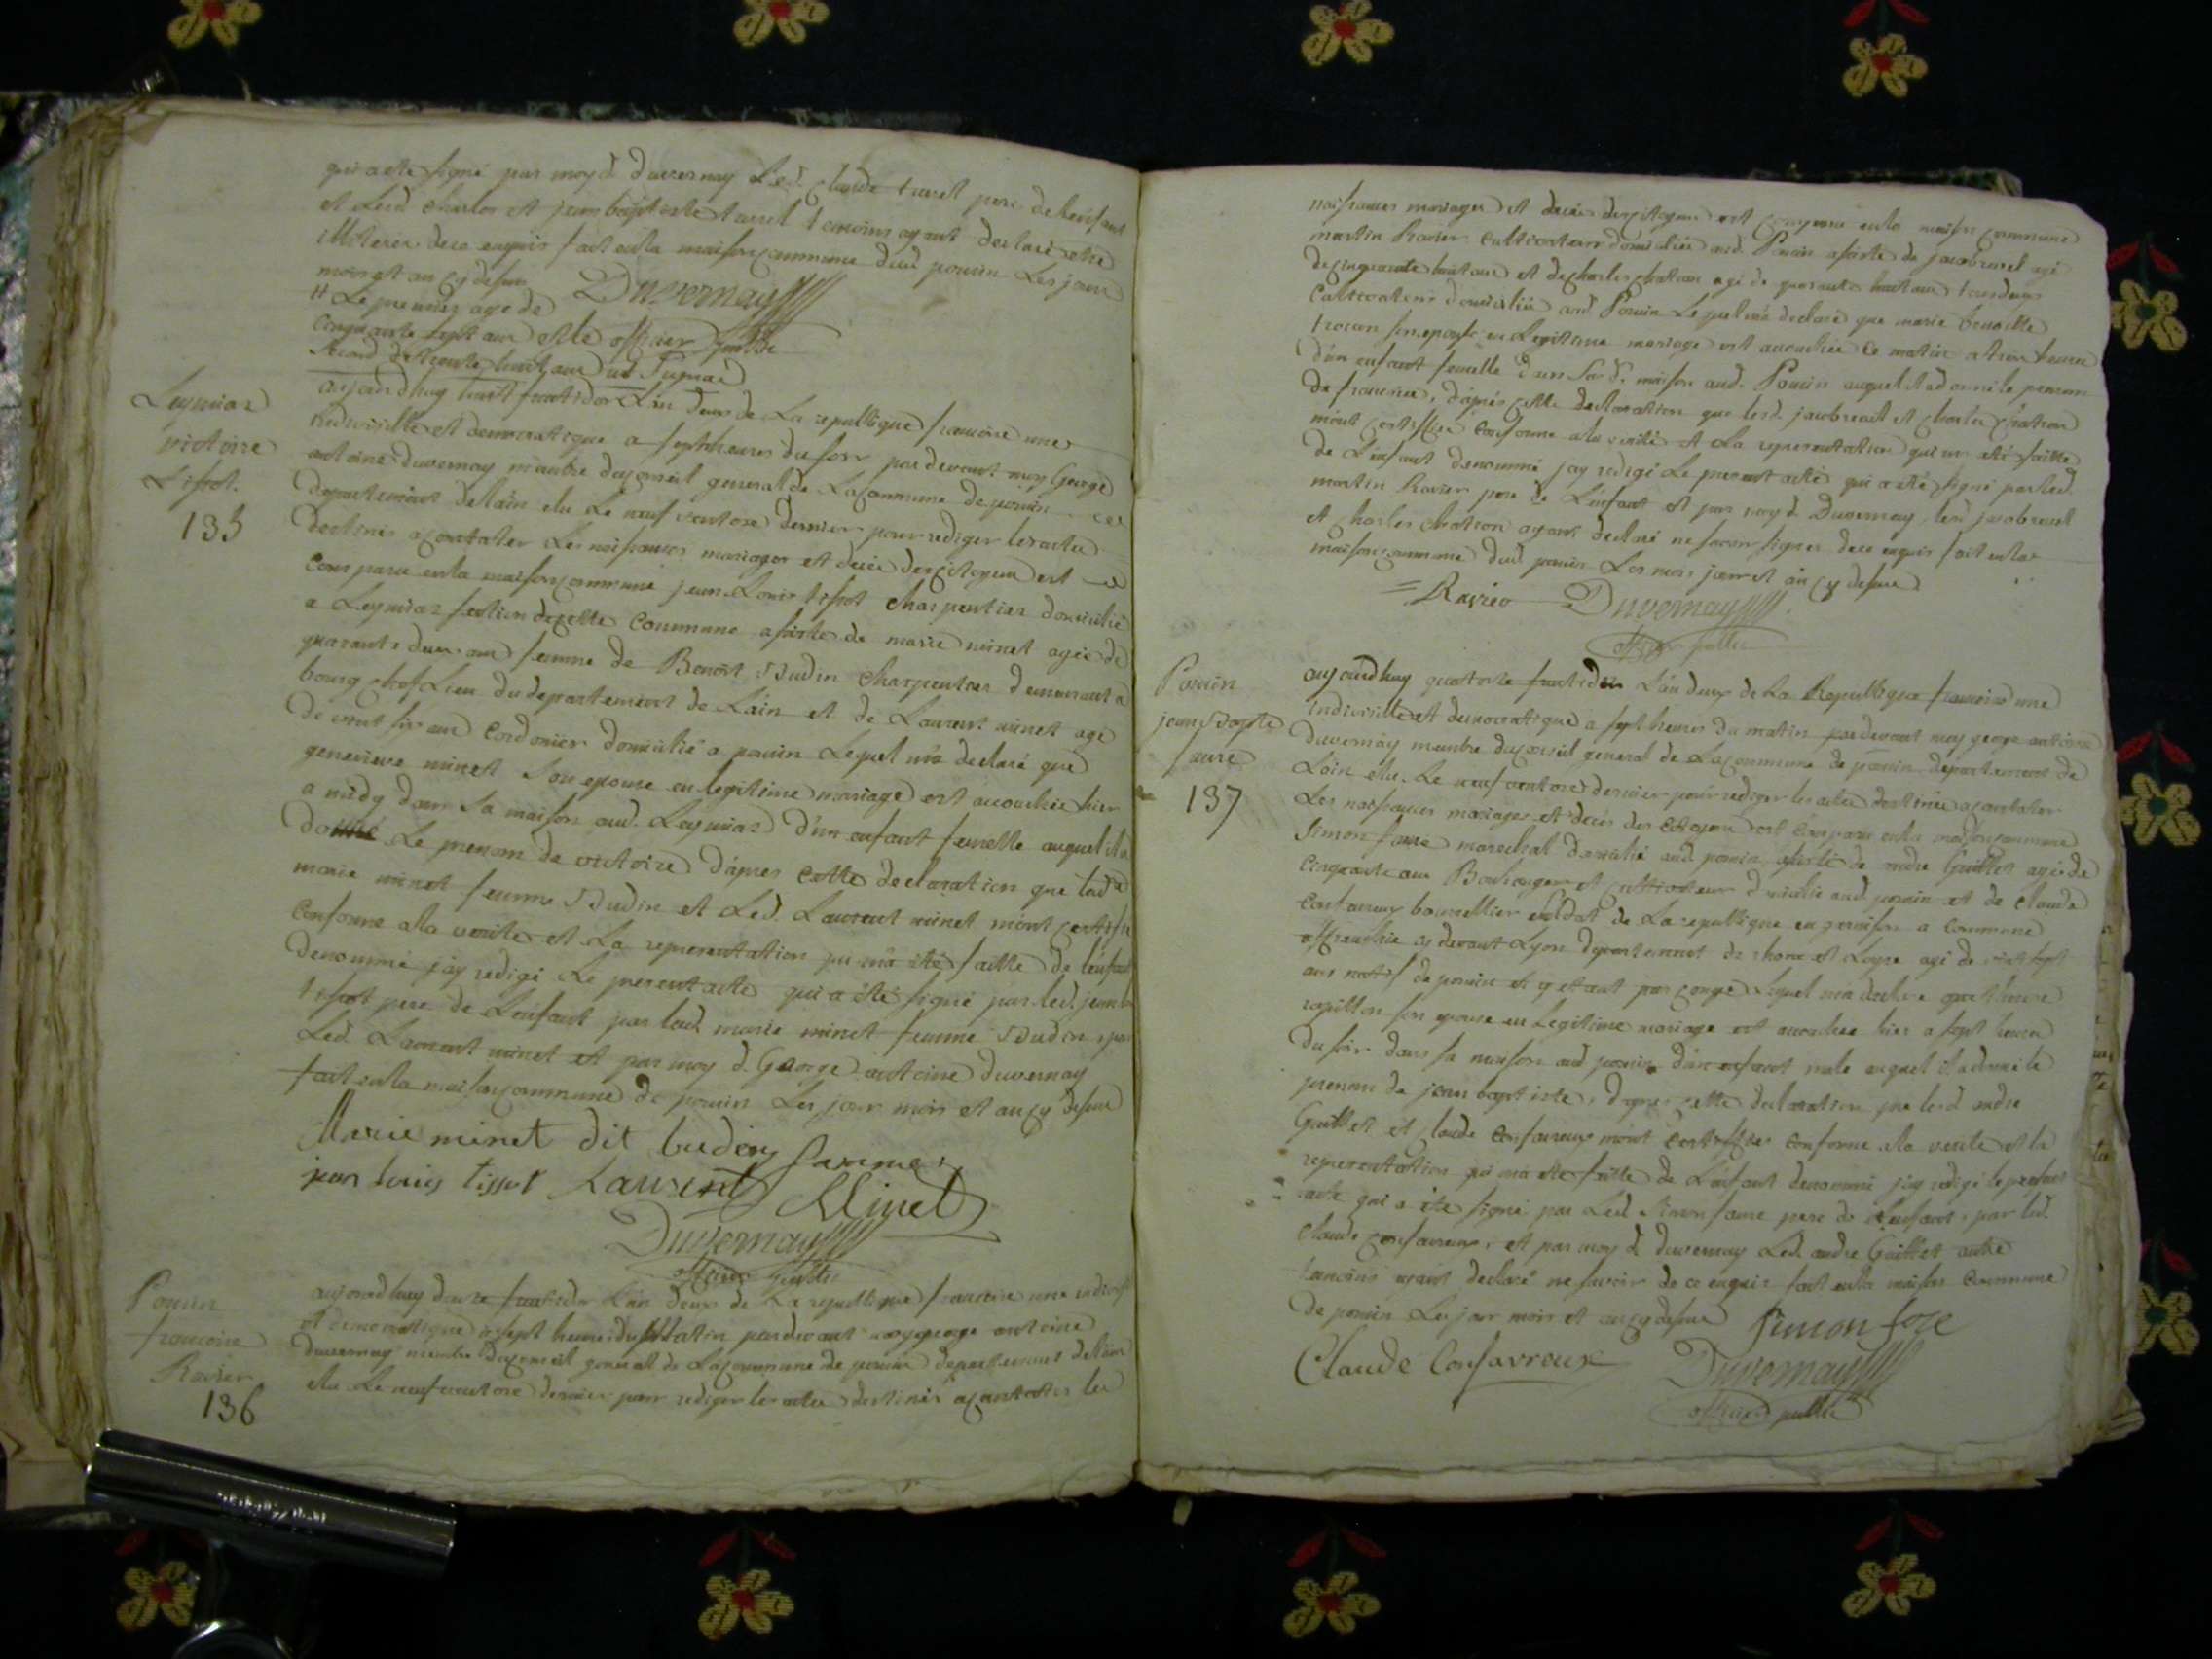 qui a ete signé par moy d. duvernay Led. claude tavel pere de lenfant
et Lesd. charles et jean baptiste tavel temoins ayant declaré etre
illiterer de ce enquis fait enla maison commune dud. poncin Les jour
mois et an cy dessus Duvernay
# Le premier agé de
cinquante sept ans et le officier public
second de trente huit ans
Leymiaz
victoire
tissot.
135
aujourdhuy huit fructidor Lan deux de La republique francoise une
indivisible et democratique a sept heures du soir par devant moy George
antoine duvernay membre du conseil general de La commune de poncin
departement de lain elu Le neuf ventose dernier pour rediger les actes
destinés a constater Les naissances mariages et deces des citoyens est
comparu enla maison commune jean Louis tissot charpentier domicilié
a Leymiaz section de cette commune assisté de marie minet agée de
quarante deux ans femme de Benoit Budin charpentier demeurant a
bourg chef Lieu du departement de Lain et de Laurent minet agé
de vingt six ans cordonier domicilié a poncin Lequel m'a declaré que
genevieve minet son epouse en legitime mariage est accouchée hier
a midy dans sa maison aud. Leymiaz d'un enfant femelle auquel il a
donné Le prenom de victoire d'apres cette declaration que lad.
marie minet femme Budin et Led. Laurent minet m'ont certifié
conforme ala verité et La representation qui m'a eté faitte de lenfant
denommé j'ay redigé Le present acte qui a été signé par led. jean L.
tissot pere de Lenfant par lad. marie minet femme Budin, par
Led. Laurent minet et par moy d. George antoine duvernay
fait enla maison commune de poncin Les jour mois et an cy dessus
Marie minet dit budin famme
jean louis tissot Laurent Minet
Duvernay
officier public
Poncin
francoise
Ravier
136
aujourdhuy douze fructidor Lan deux de La republique francoise une indivisible
et democratique a sept heures du matin pardevant moy george antoine
duvernay membre du conseil general de La commune de poncin departement de lain
elu Le neuf ventose dernier pour rediger les actes destinés a constater les
naissances mariages et deces des citoyens est comparu enla maison commune
martin Ravier cultivateur domicilié aud. Poncin assisté de agé
de cinquante huit ans et de charles chatron agé de quarante huit ans tous deux
cultivateurs domiciliés aud. Poncin Lequel m'a declaré que marie
son epouse en Legitime mariage est accouchée ce matin a trois heures
d'un enfant femelle dans sad. maison aud. Poncin auquel il a donné le prenom
de francoise, d'après cette declaration que lesd. et charles chatron
m'ont certiffiée conforme ala verité et La representation qui m'a eté faitte
de Lenfant denommé jay redigé Le present acte qui a eté signé par led.
martin Ravier pere de L'enfant et par moy d. Duvernay, lesd.
et charles chatron ayant declaré ne savoir signer de ce enquis fait enla
maison commune dud. poncin Les mois jour et an cy dessus
Ravier Duvernay
officier public
Poncin
jean Baptiste
faure
137
aujourdhuy quatorze fructidor L'an deux de La Republique francoise une
indivisible et democratique a sept heures du matin pardevant moy george antoine
Duvernay membre du conseil general de La commune de poncin departement de
Lain elu Le neuf ventose dernier pour rediger les actes destinés a constater
Les naissances mariages et deces des citoyens est comparu enla maison commune
Simon faure marechal domicilié aud. poncin assisté de andre Guillet agé de
cinquante ans Boulanger et cultivateur domicilié aud. poncin et de claude
confavreux bourellier soldat de La republique en garnison a commune
affranchie cy devant Lyon departement de rhone et Loyre agé de vint sept
ans natif de poncin et y etant par congé Lequel m'a declaré que
son epouse en Legitime mariage est accouchée hier a sept heures
du soir dans sa maison aud. poncin d'un enfant male auquel il a donné le
prenom de jean baptiste, d'apres cette declaration que lesd. andre
Guillet et claude confavreux m'ont certiffiée conforme ala verité et la
representation qui m'a eté faitte de L'enfant denommé j'ay redigé le present
acte qui a eté signé par Led. Simon faure pere de L'enfant, par led.
claude confavreux, et par moy d. duvernay Led. andre Guillet autre
temoins ayant declaré ne savoir de ce enquis fait enla maison commune
de poncin Les jour mois et an cy dessus Simon fore
Claude Confavreux Duvernay
officier public